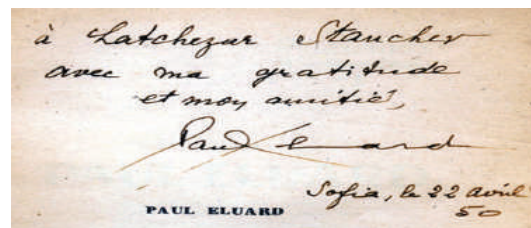 à Latchezar Stancher
avec ma gratitude
et mon amitié,
Paul Eluard
Sofia, le 22 avril
50
PAUL ELUARD